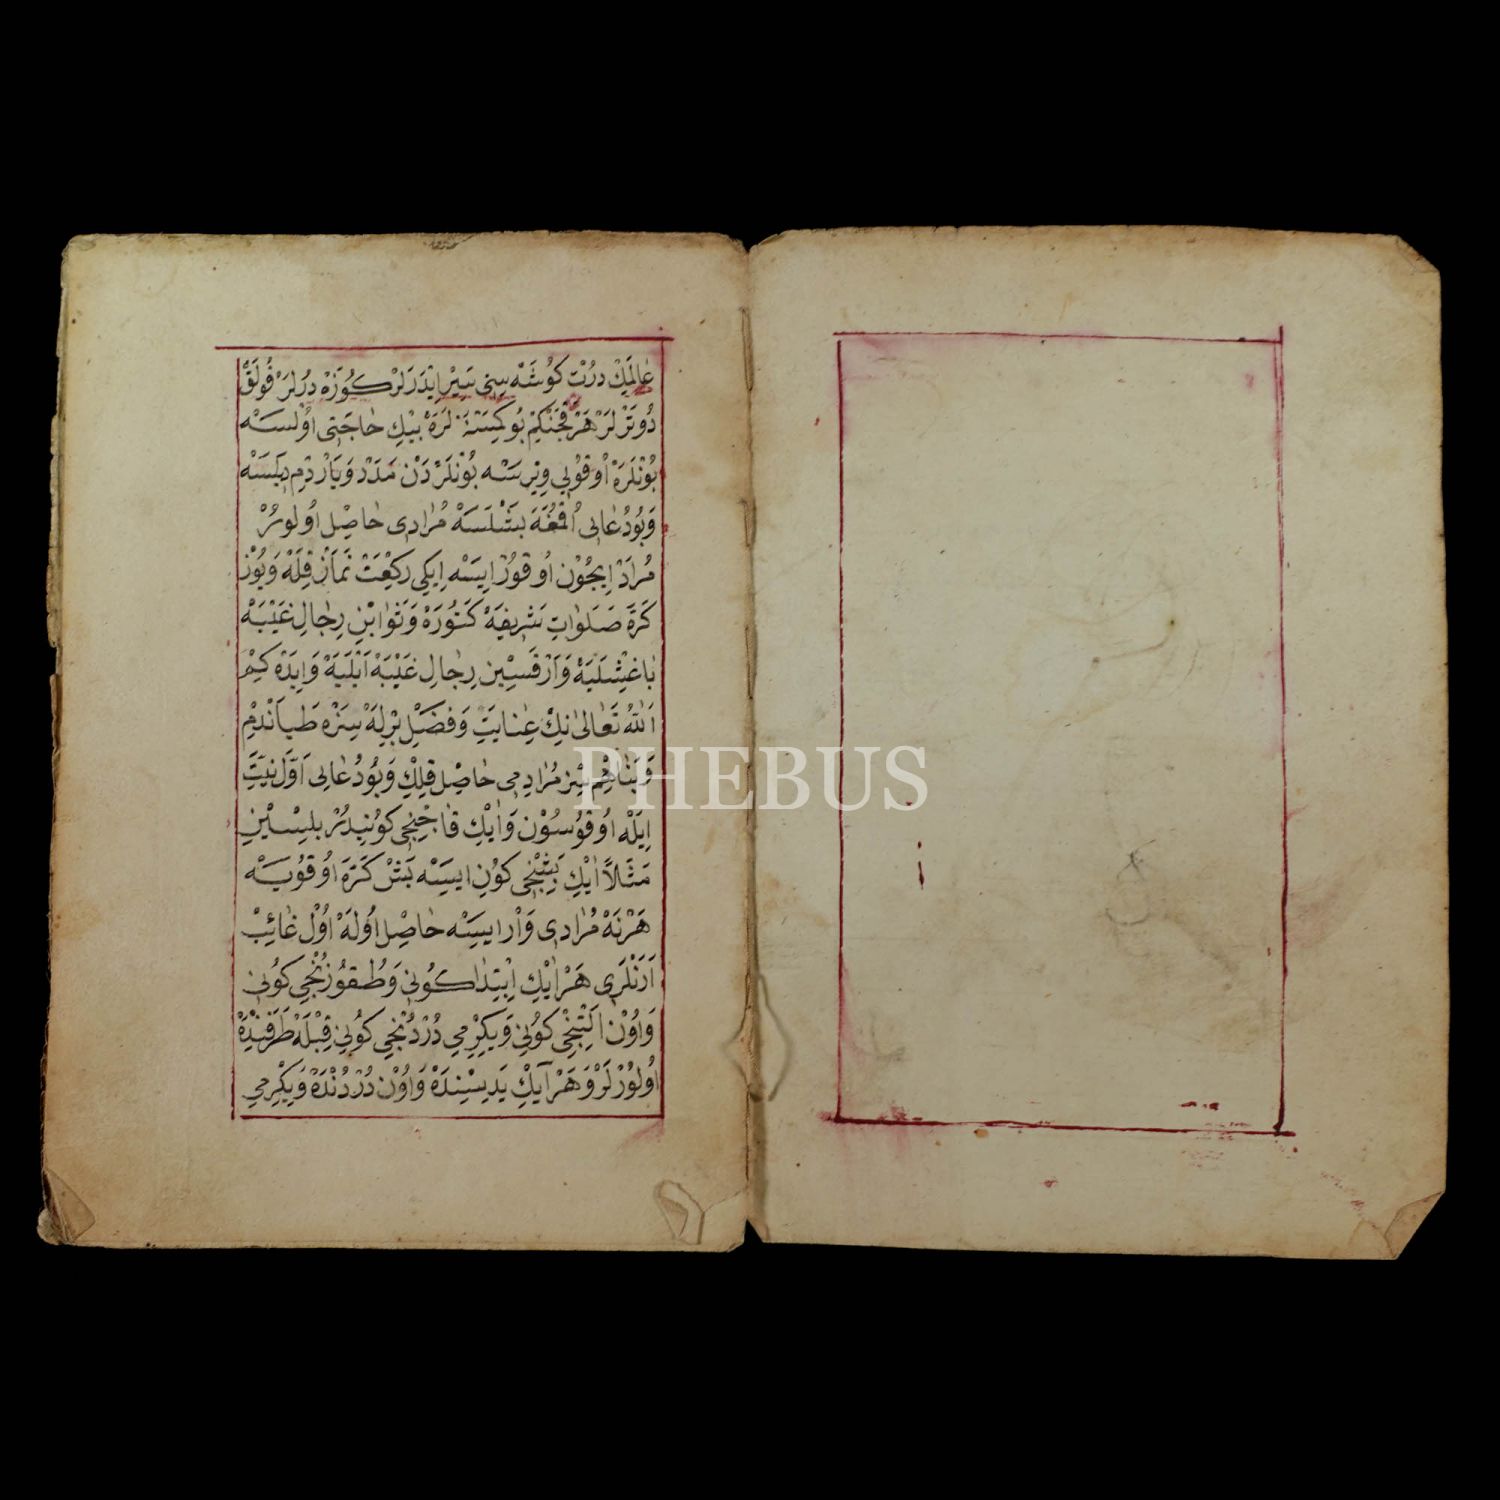 عَالَمِكْ دُرْتْ كُوشَهْ سِنِى سَيْرْ اِيْدَرْلَرْ كُوزَهْ دُرْلَرْ قُولَقْ
دُوتَرْلَرْ هَرْ قَچَنْكِمْ بُو كِمَسْنَهْ لَرَهْ بِيْكْ حَاجَتِى اُولْسَهْ
بُوْنْلَرَهْ اُوقُوْيِى وِيْرسَهْ بُوْنْلَرْدَنْ مَدَدْ وَيَارْدِمْ دِيلَسَهْ
وَبُو دُعَايِى اُقُمَغَهْ بَشْلَسَهْ مُرَادِى حَاصِلْ اُولُورْ
مُرَادْ اِيچُوْنْ اُوقُوْرْ اِيسَهْ اِيكِى رَكْعَتْ نَمَازْ قِلَهْ وَيُوْزْ
كَرَّهْ صَلَوَاتِ شَرِيفَهْ كَتُورَهْ وَثَوَابْنِ رِجَالِ غَيْبَهْ
بَاغِشْلَيَهْ وَآرْقَسِيْنِ رِجَالِ غَيْبَهْ اَيْلَيَهْ وَايِدَهْ كِمْ
اَللّٰهُ تَعَالٰى نِكْ عِنَايَتِ وَفَضْلِ بِرْلَهْ سِزَهْ طَيَانْدِمْ
وَپَنَاهِمْ سِزْ مُرَادِمِى حَاصِلْ قِلِكْ وَبُو دُعَايِى اَوَّلْ نِيَّتْ
اِيْلَهْ اُوقُوسُوْنْ وَآيِكْ قَاچِنْجِى كُونِيدُرْ بِلْسِيْنِ
مَثَلاً آيِكْ بَشِنْجِى كُونِ ايسَهْ بَشْ كَرَّهْ اُوقُويَهْ
هَرْ نَهْ مُرَادِى وَارْ ايسَهْ حَاصِلْ اُولَهْ اُوْلْ غَائِبْ
اَرَنْلَرِى هَرْ آيِكْ اِبْتِدَا كُونِى وَطُقُوزُنْجِى كُونِى
وَاُوْنْ اَلْتِنْجِى كُونِى وَيِكِرْمِى دُرْدُنْجِى كُونِى قِبْلَهْ طَرَفِنْدَهْ
اُولُوْرْلَرْ وَهَرْ آيِكْ يَدِيسِنْدَهْ وَاُوْنْ دُرْدُنْدَهْ وَيِكِرْمِى
PHEBUS